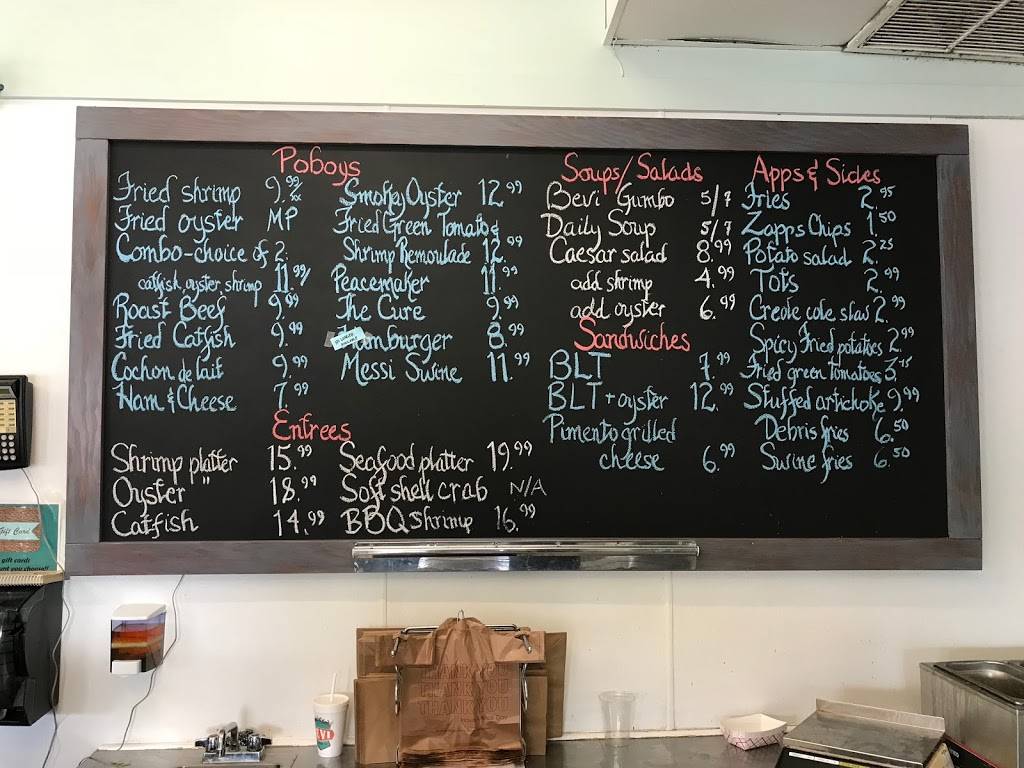 Poboys
Fried shrimp 9.99
Fried oyster MP
Combo-choice of 2
catfish, oyster, shrimp 11.99
Roast Beef 9.99
Fried Catfish 9.99
Cochon de lait 9.99
Ham & Cheese 7.99
Smoky Oyster 12.99
Fried Green Tomato &
Shrimp Remoulade 12.99
Peacemaker 11.99
The Cure 9.99
Hamburger 8.99
Messi Swine 11.99
Entrees
Shrimp platter 15.99
Oyster " 18.99
Catfish 14.99
Seafood platter 19.99
Soft shell crab N/A
BBQ shrimp 16.99
Soups/Salads
Bevi Gumbo 5/7
Daily Soup 5/7
Caesar salad 8.99
add shrimp 4.99
add oyster 6.99
Sandwiches
BLT 7.99
BLT + oyster 12.99
Pimento grilled
cheese 6.99
Apps & Sides
Fries 2.95
Zapps Chips 1.50
Potato salad 2.25
Tots 2.99
Creole cole slaw 2.99
Spicy Fried potatoes 2.99
Fried green tomatoes 3.75
Stuffed artichoke 9.99
Debris fries 6.50
Swine fries 6.50
Gift Card
gift cards
THANK YOU
THANK YOU